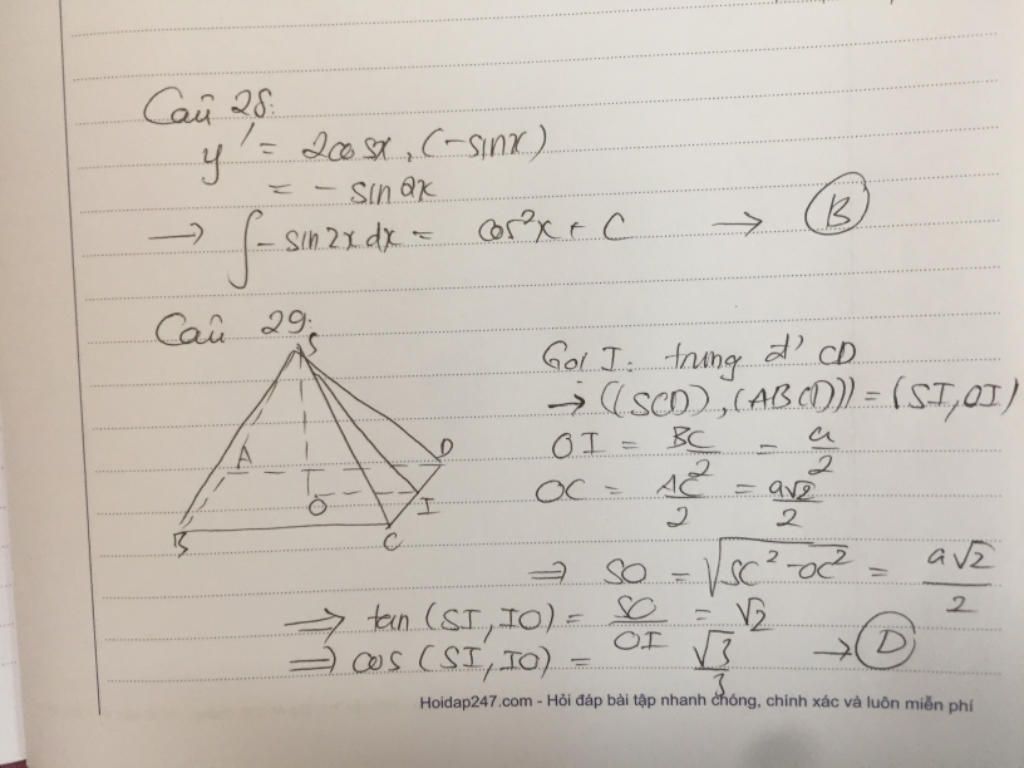 Câu 28:
y' = 2cosx.(-sinx)
= - sin2x
→ ∫ - sin2x dx = cos²x + C → B
Câu 29:
S
A
D
O
I
B
C
Gọi I: trung đ' CD
→ ((SCD), (ABCD)) = (SI, OI)
OI = BC/2 = a/2
OC = AC/2 = a√2/2
⇒ SO = √(SC² - OC²) = a√2/2
⇒ tan (SI, IO) = SO/OI = √2
⇒ cos (SI, IO) = √3/3 → D
Hoidap247.com - Hỏi đáp bài tập nhanh chóng, chính xác và luôn miễn phí